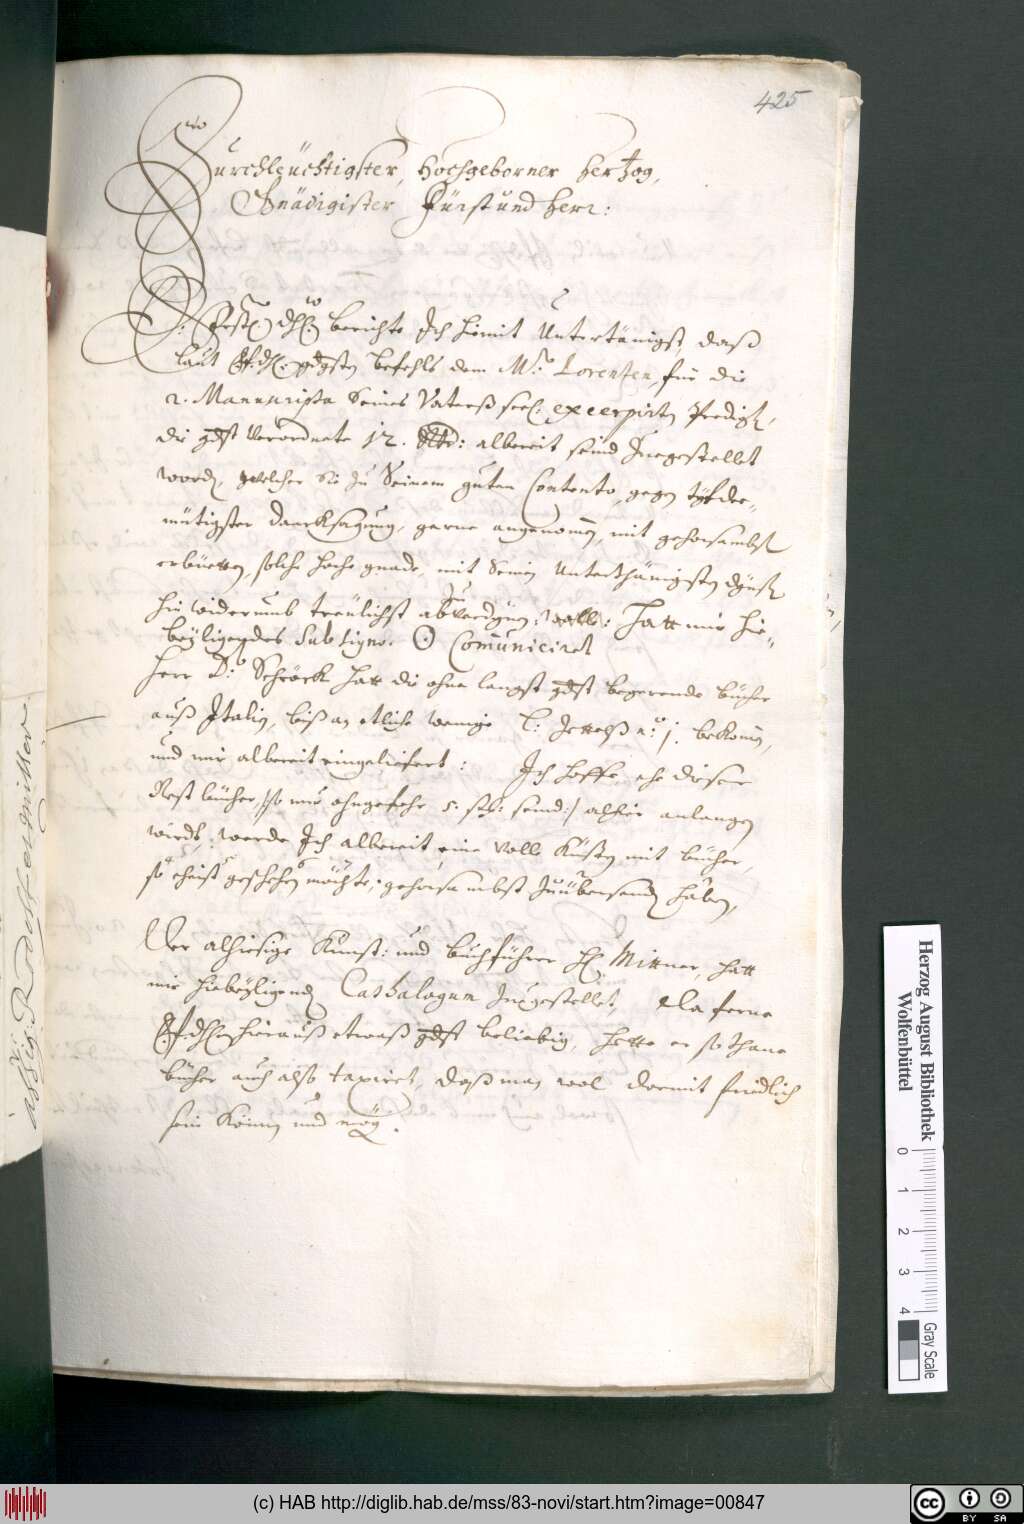 425
Durchleüchtigster, Hochgeborner Hertzog,
Gnädigister Fürst und Herr:
berichte Ich hiemit Untertänigst, daß
laut befehls dem Mr. Lorentzen, für die
2. Manuscripta Seines Vaterß seel: excerpirten Predigt,
die gdst Verordnete 12. albereit seind Zuegestellet
worden, welcher Sie zu Seinem guten Contento, gegen
mütigster Dancksagung, gerne angenomen, mit gehorsambst
erbüetten, solche hohe gnade, mit Seinen Unterthänigsten
hinwiderumb treülichst Hatt mir hie-
beÿligendes Sub signo. ☉ Comuniciret
Herr D. Schröck hatt die ohne langst gdst begerende bücher
auß Italien, biß an etliche wenige bekomen,
und mir albereit eingeliefert: Ich hoffe, ehe dieser
Rest bücher, so nur ohngefehr 5. seind alhier anlangen
wirdt, werde Ich albereit eine Volle Küsten mit bücher,
so ehrist geschehen möchte, gehorsambst Zuübersenden haben,
Der alhiesige Kunst: und buchführer H. Mittner, hatt
mir hiebeÿligenden Cathalogum Zuegestellet, Da ferne
hierauß etwaß gdst beliebig, hette er sothane
bücher auch also taxiret, daß man wol darmit friedlich
sein Könne und mög.
Herzog August Bibliothek
Wolfenbüttel
0 1 2 3 4
Gray Scale
(c) HAB http://diglib.hab.de/mss/83-novi/start.htm?image=00847
cc BY SA